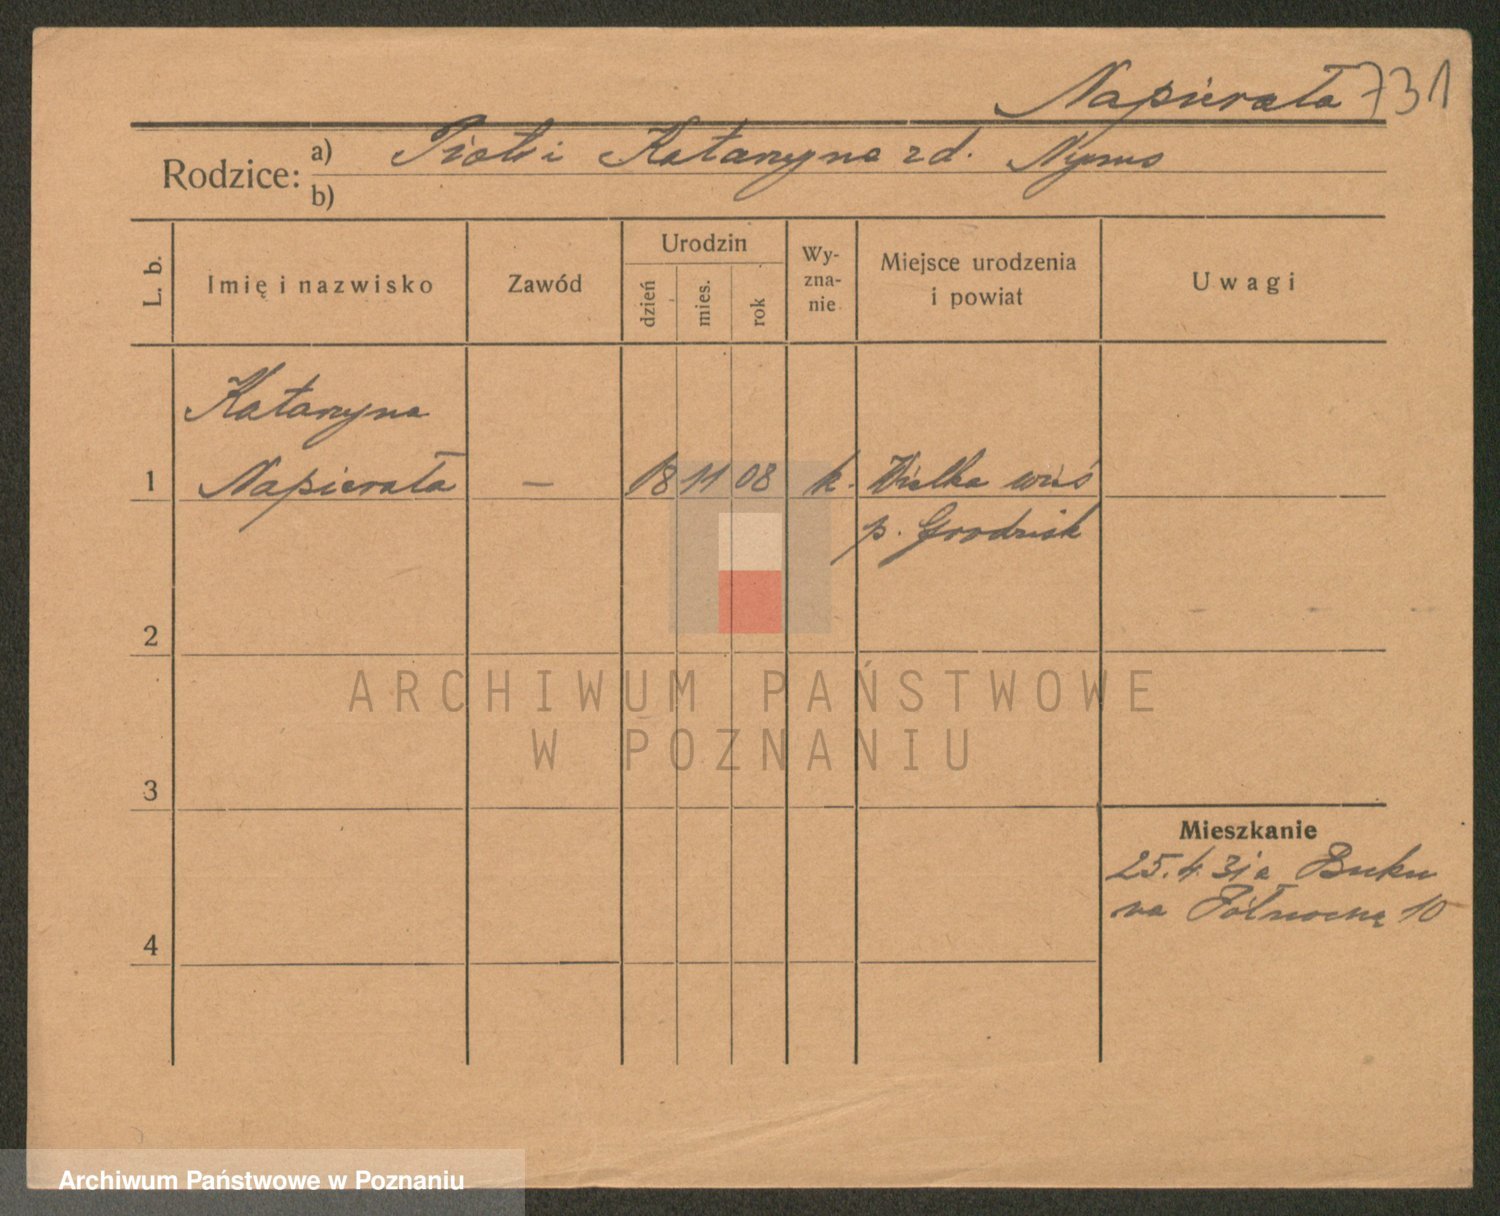 Napierała 731
Rodzice: a) Piotr i Katarzyna zd.
b)
L. b.
Imię i nazwisko
Zawód
Urodzin
dzień
mies.
rok
Wy-
zna-
nie
Miejsce urodzenia
i powiat
Uwagi
Katarzyna
1 Napierała — 18 11 08 k. Wielka wieś
p. Grodzisk
2
ARCHIWUM PAŃSTWOWE
W POZNANIU
3
Mieszkanie
25.4.31 a Buku
na Północną 10
4
Archiwum Państwowe w Poznaniu